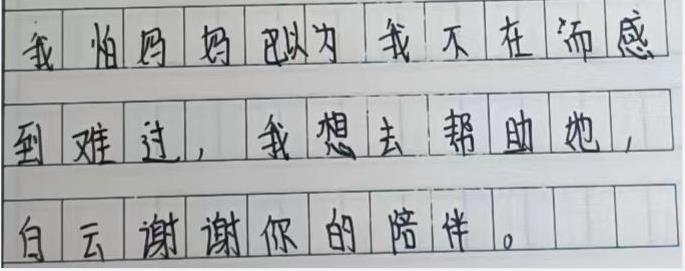 我怕妈妈已以为我不在而感
到难过，我想去帮助她，
白云谢谢你的陪伴。